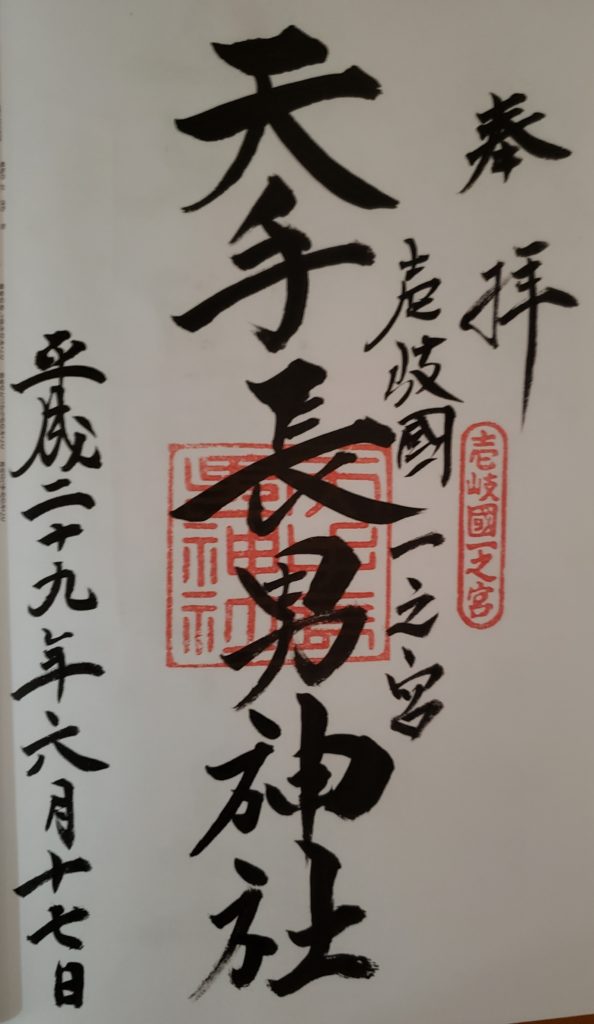 奉拝
壱岐國一之宮
壱岐國一之宮
天手長男神社
天手長男神社
平成二十九年六月十七日